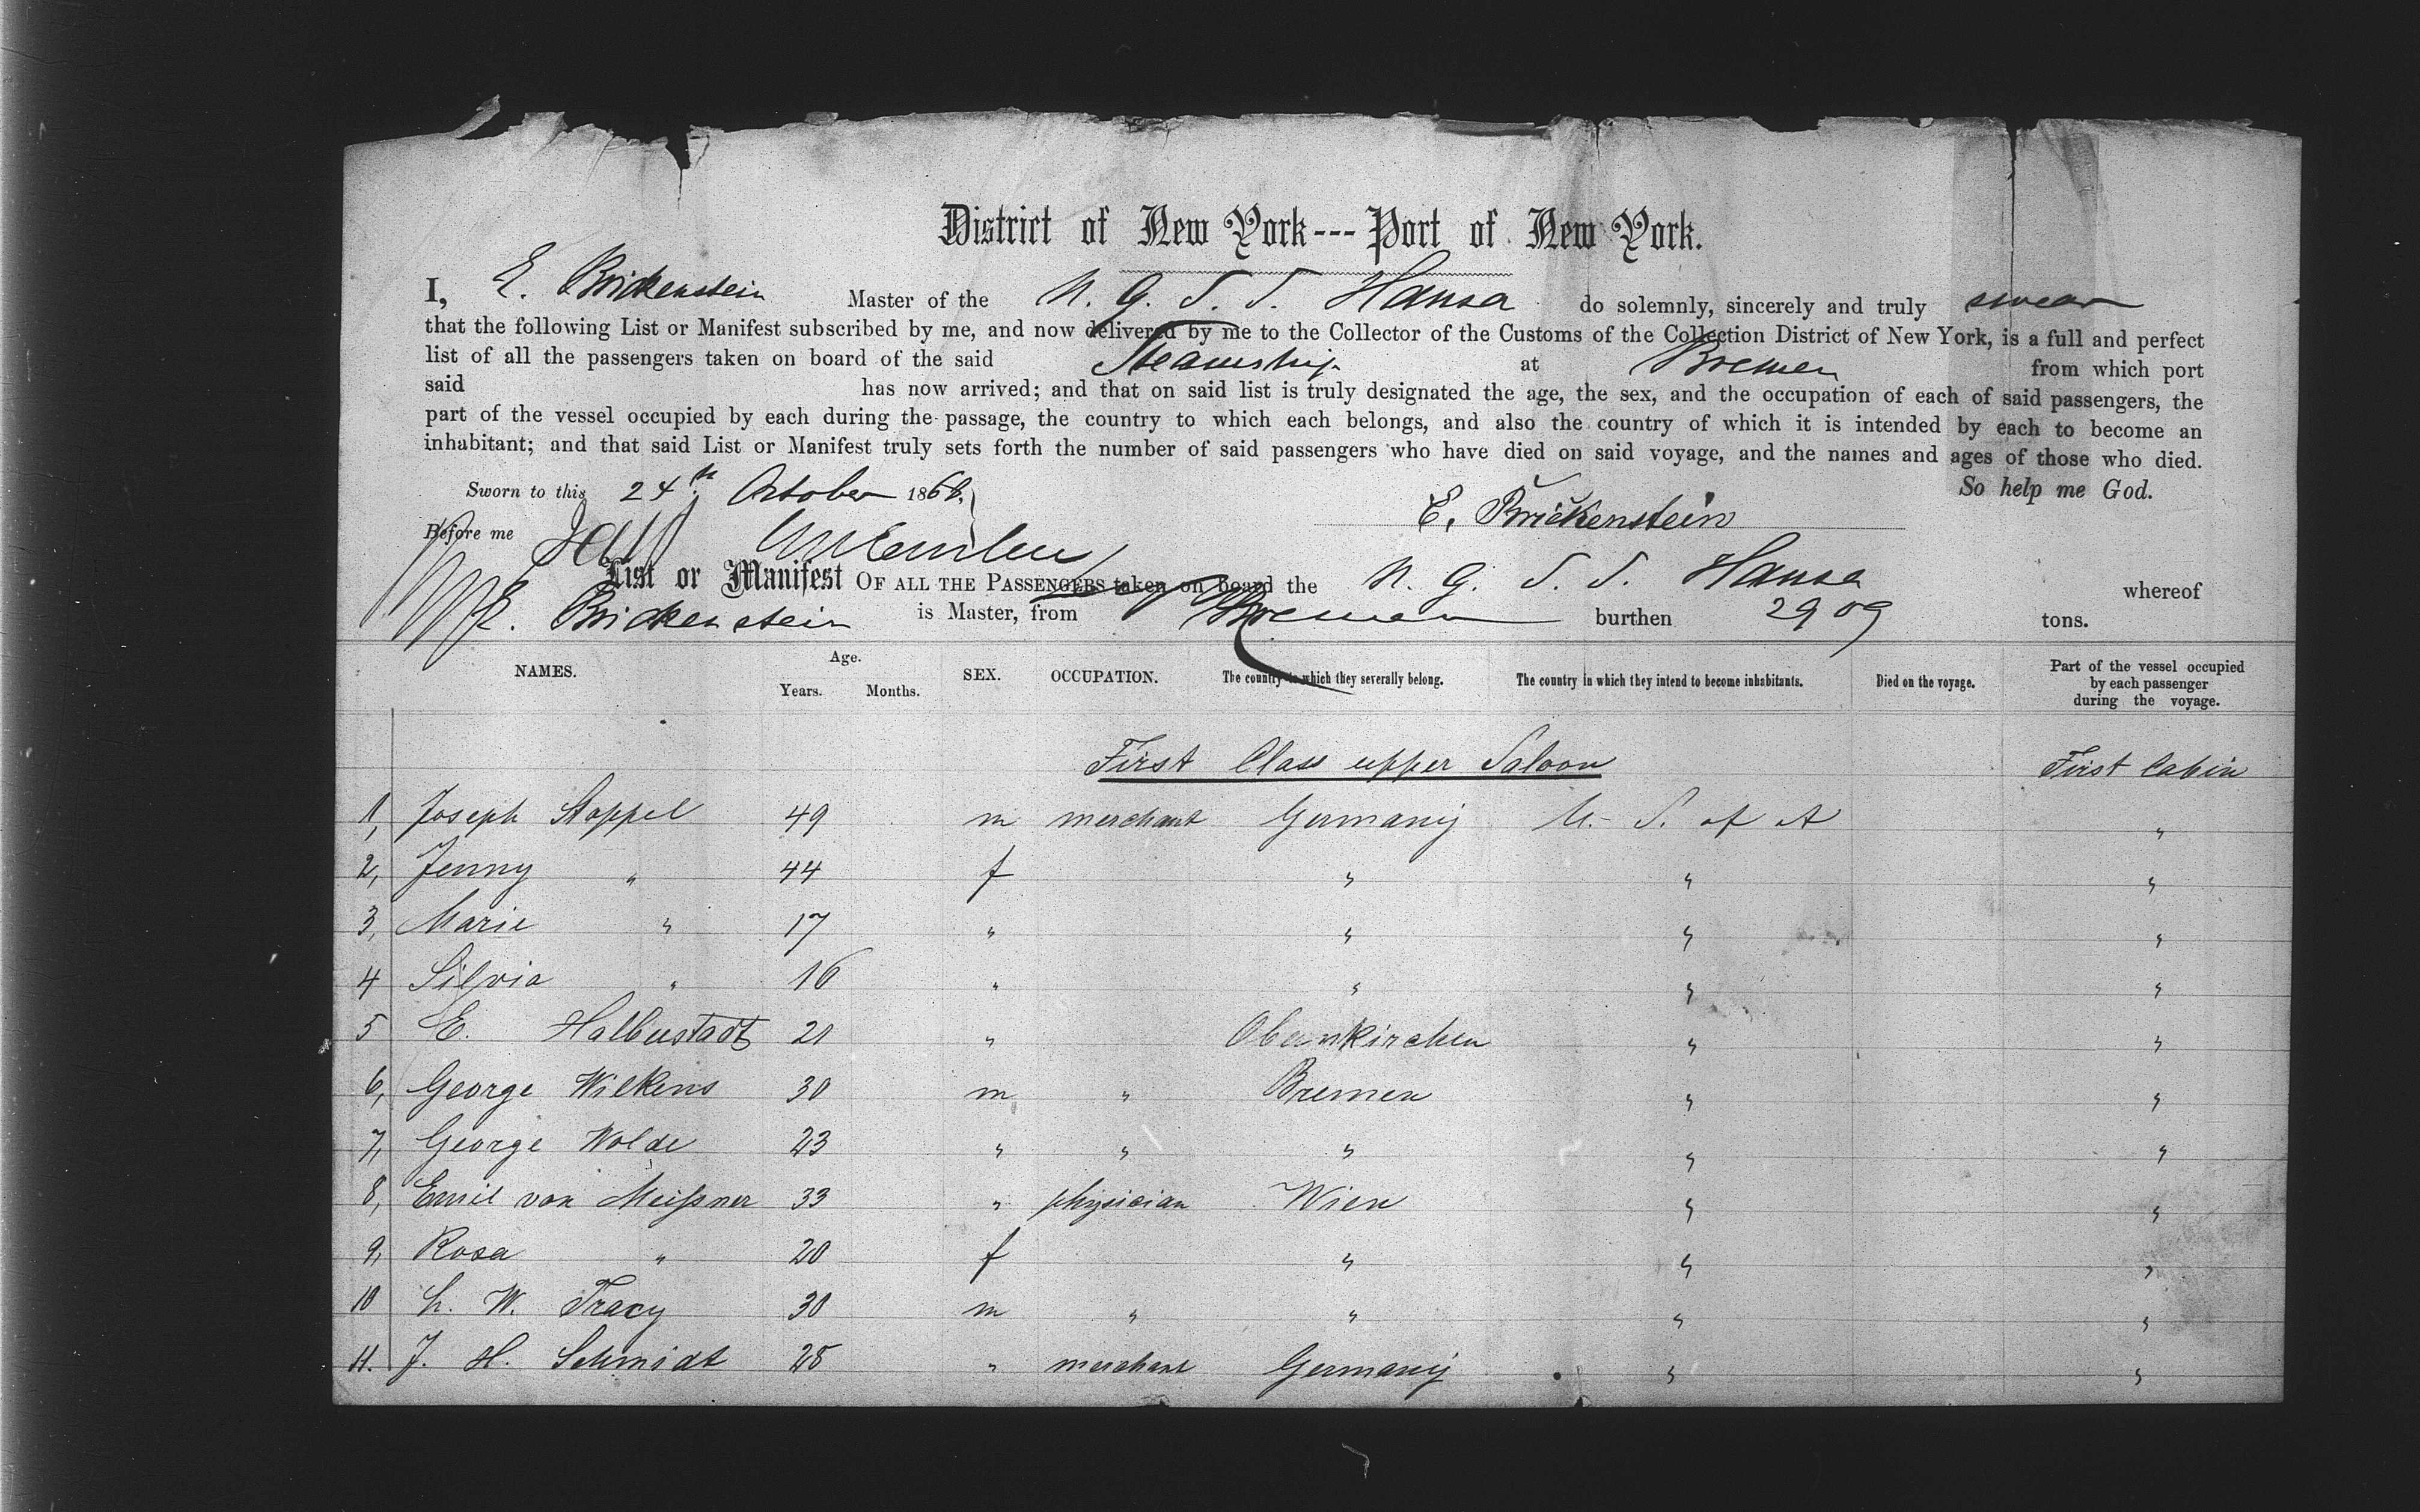 District of New York --- Port of New York.
I, E. Brickenstein Master of the N. G. S. S. Hansa do solemnly, sincerely and truly swear
that the following List or Manifest subscribed by me, and now delivered by me to the Collector of the Customs of the Collection District of New York, is a full and perfect
list of all the passengers taken on board of the said Steamship at Bremen from which port
said has now arrived; and that on said list is truly designated the age, the sex, and the occupation of each of said passengers, the
part of the vessel occupied by each during the passage, the country to which each belongs, and also the country of which it is intended by each to become an
inhabitant; and that said List or Manifest truly sets forth the number of said passengers who have died on said voyage, and the names and ages of those who died.
Sworn to this 24th October 1868. So help me God.
Before me E. Brickenstein
List or Manifest OF ALL THE PASSENGERS taken on board the N. G. S. S. Hansa whereof
E. Brickenstein is Master, from Bremen burthen 2909 tons.
NAMES. Age. Years. Months. SEX. OCCUPATION. The country to which they severally belong. The country in which they intend to become inhabitants. Died on the voyage. Part of the vessel occupied by each passenger during the voyage.
First Class upper Saloon First Cabin
1, Joseph Stoppel 49 m merchant Germany U. S. of A "
2, Jenny " 44 f " " "
3, Marie " 17 " " " "
4 Silvia " 16 " " " "
5 E. Halbustadt 21 " Obernkirchen " "
6, George Wilkens 30 m " Bremen " "
7, George Wolde 23 " " " " "
8, Emil von Meißner 33 " physician Wien " "
9, Rosa " 20 f " " "
10 L. W. Tracy 30 m " " " "
11. J. H. Schmidt 28 " merchant Germany " "